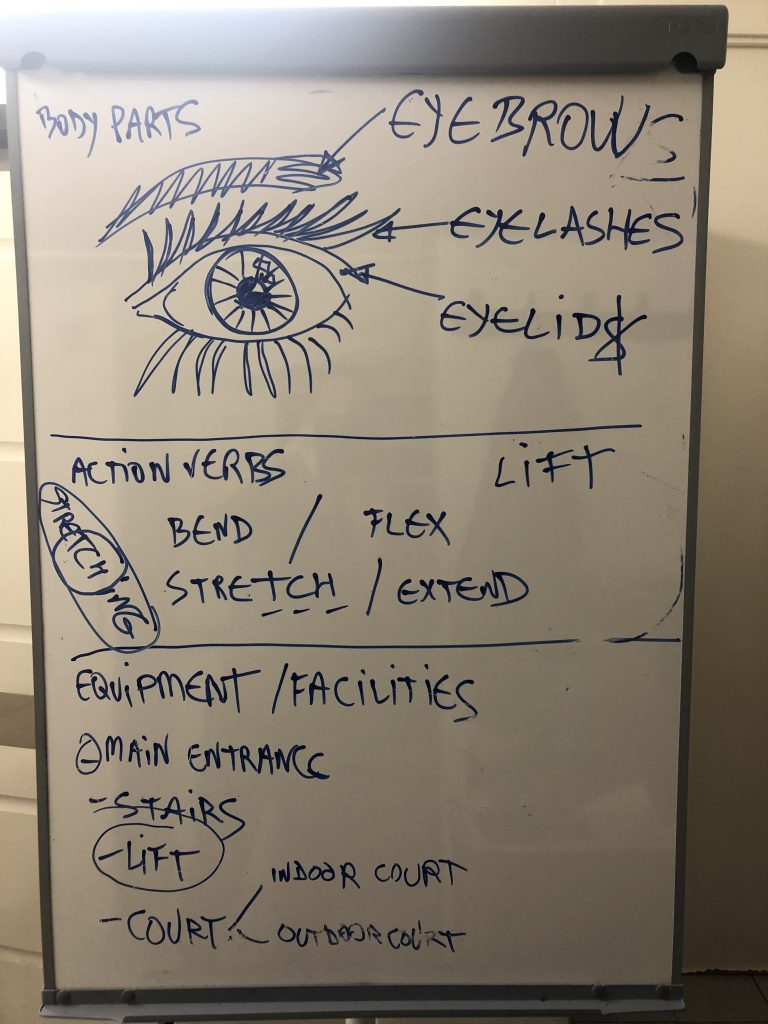 BODY PARTS
EYEBROWS
EYELASHES
EYELIDS
ACTION VERBS
LIFT
BEND / FLEX
STRETCHING
STRETCH / EXTEND
EQUIPMENT / FACILITIES
- MAIN ENTRANCE
- STAIRS
- LIFT
INDOOR COURT
- COURT
OUTDOOR COURT